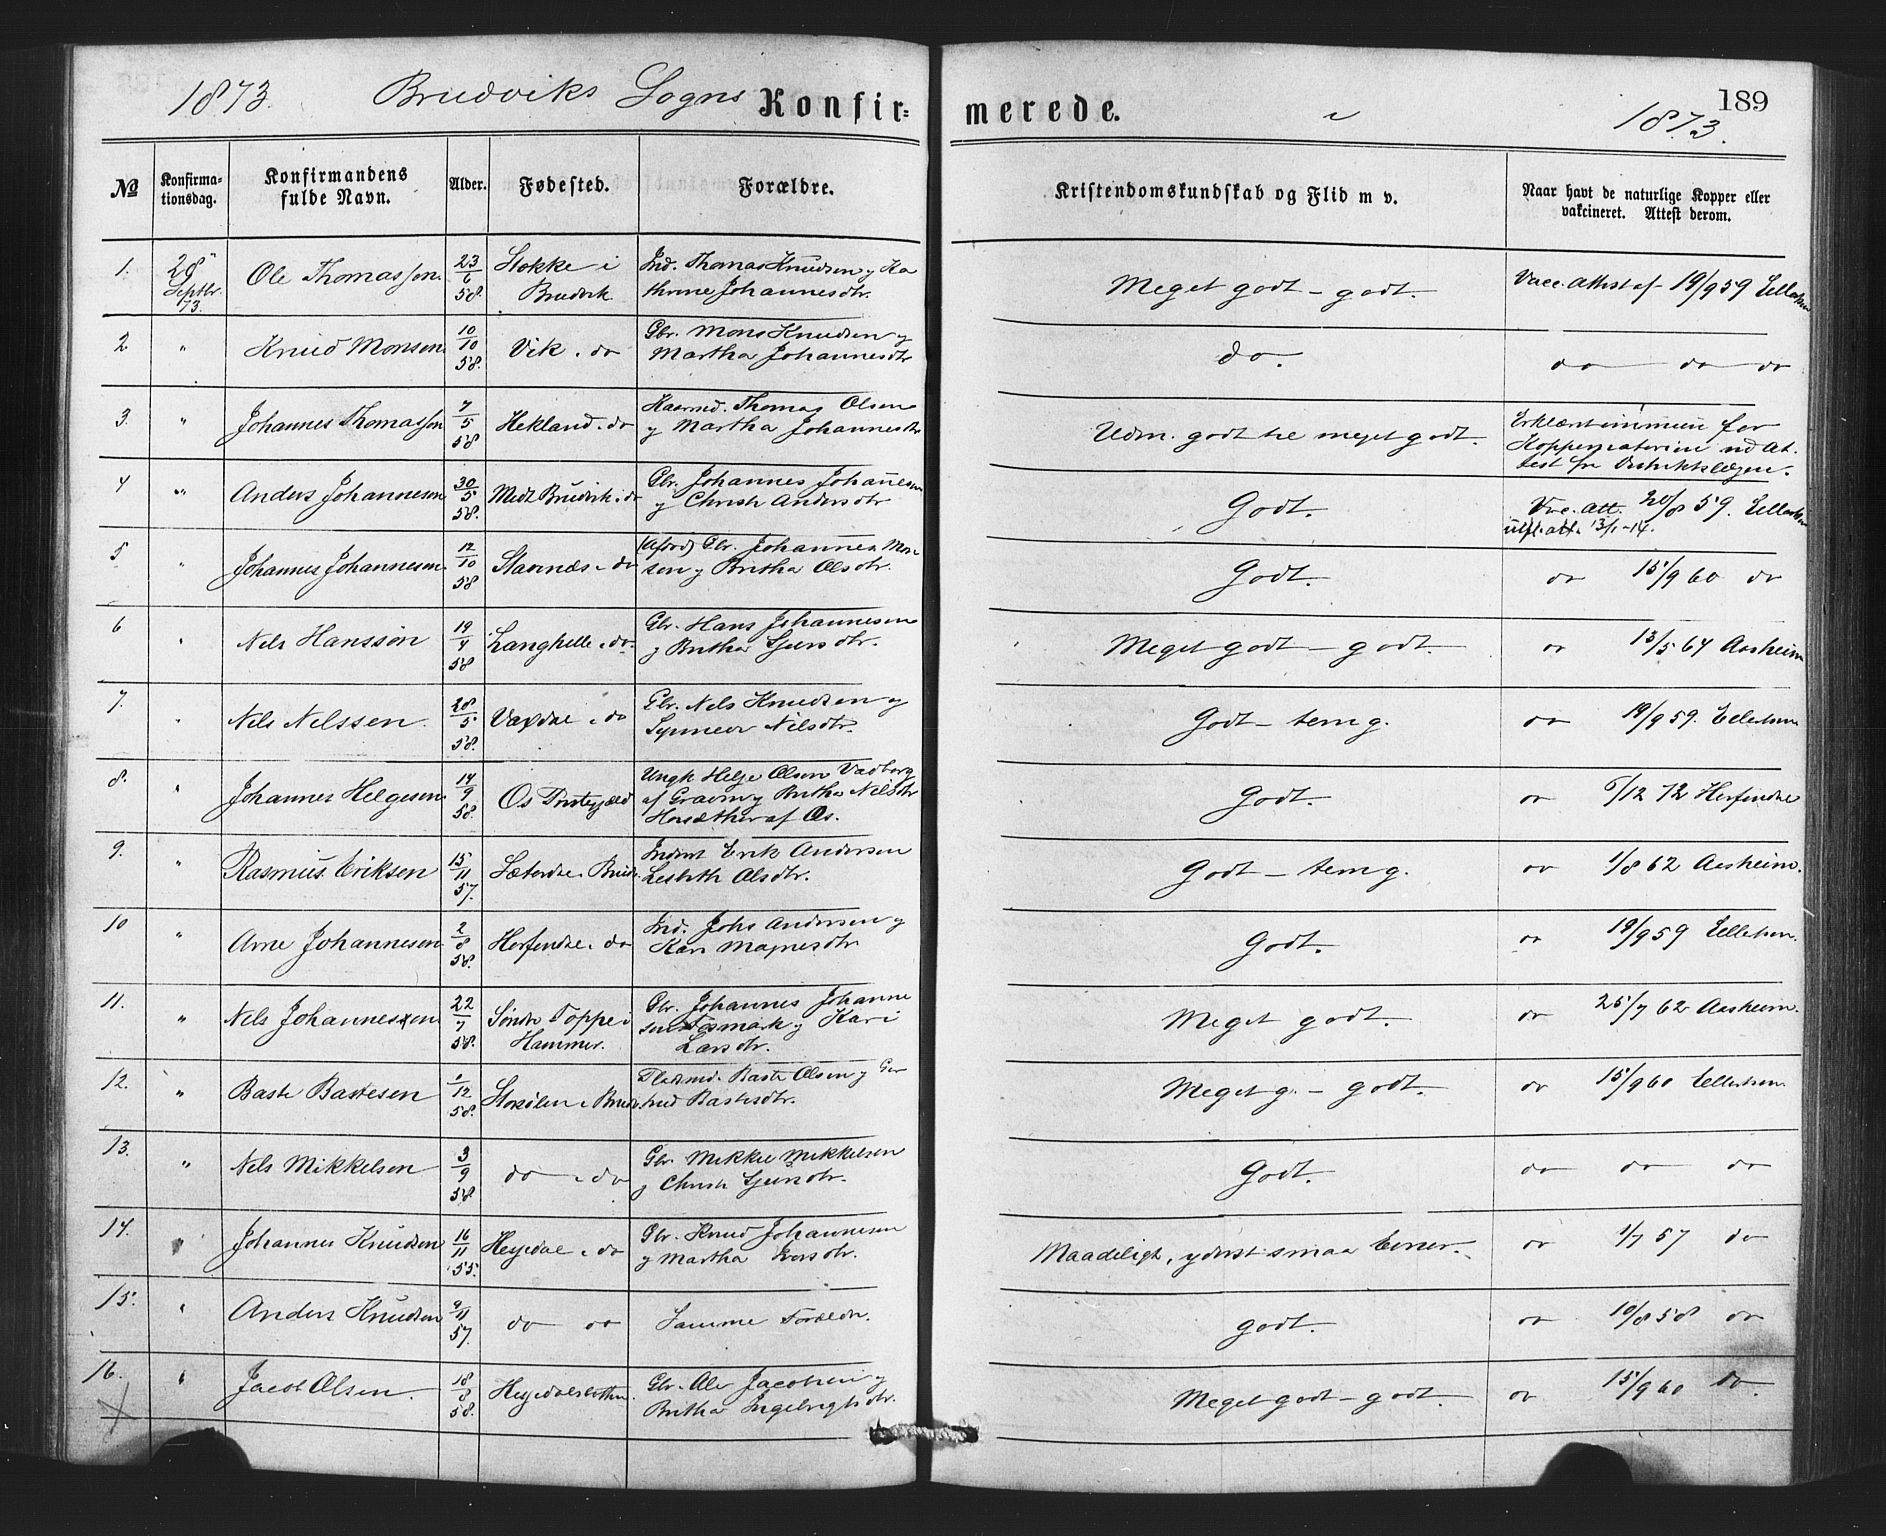 189
1873. Brudviks Sogns Konfir=merede. 1873.
No
Konfirma-
tionsdag.
Konfirmandens
fulde Navn.
Alder.
Fødested.
Forældre.
Kristendomskundskab og Flid m v.
Naar havt de naturlige Kopper eller
vakcineret. Attest derom.
1. 28 Septbr. 73. Ole Thomassen 23/6 58. Stokke i Brudvik Ind. Thomas Knudsen y Ka
thrine Johannesdtr. Meget godt - godt. Vacc. attest af 19/9 59 Ellertsen
2. " Knud Monsen 10/10 58. Vik i do Gbr. Mons Knudsen y
Martha Johannesdtr do. do do do
3. " Johannes Thomassen 7/5 58 Hekland i do Thomas Olsen
y Martha Johannesdtr Udm. godt til meget godt. Erklært immun for
Koppematerien
test fra Distriktslægen.
4 " Anders Johannesen 30/5 58. Midt Brudvik i do Gbr. Johannes Johannesen
y Christi Andersdtr Godt. Vac. att. 20/8 59. Ellertsen
att. 13/1-14.
5 " Johannes Johannesen 12/10 58 Stavnæs i do Gbr. Johannes Mon
sen y Britha Olsdtr. Godt. do 15/9 60 do
6 " Nels Hanssøn 19/4 58 Langhelle i do. Gbr. Hans Johannesen
y Britha Sjursdtr. Meget godt - godt. do 13/5 64 Aasheim
7. " Nels Nelssen. 28/5 58. Vaxdal i do Gbr. Nels Knudsen y
Synneve Nilsdtr. Godt - temg. do 19/9 59. Ellertsen
8. " Johannes Helgesen 14/9 58. Os Præstegjæld Ungk Helje Olsen Vadberg
af Graven y Britha Nilsdtr
af Os. Godt. do 6/12 72 Herfindal
9. " Rasmus Eriksen 15/11 57. Sæterdal i Brudv. Inderst Erik Andersen
Lisbeth Olsdtr. Godt - temg. do 1/8 62 Aasheim.
10 " Arne Johannesen 2/8 58. Herfindal i do Ind. Johs Andersen y
Kari Magnesdtr Godt. do 19/9 59 Ellertsen.
11. " Nels Johannesen 22/7 58. Søndre Toppe i
Hammer. Gbr. Johannes Johanne
sen y Kari
Larsdtr. Meget godt. do 25/7 62 Aasheim.
12. " Baste Bastesen 1/12 58. i Brudv. Pladsmd. Baste Olsen y Ger
trud Bastesdtr. Meget g. - godt. do 15/9 60 Ellertsen
13. " Nels Mikkelsen 3/9 58 do i do Gbr. Mikkel Mikkelsen
y Christi Sjursdtr. Godt. do do do
14. " Johannes Knudsen 16/11 55. Hesjedal i do Gbr. Knud Johannesen
y Martha Iversdtr. Maadeligt, yderst smaa Evner. do 1/7 57 do
15. " Anders Knudsen 9/11 57. do do Samme Forældre. godt. do 10/8 58 do
16. " Jacob Olsen 18/8 58. Gbr. Ole Jacobsen y
Britha Ingebrigtsdtr. Meget godt - godt. do 15/9 60 do.